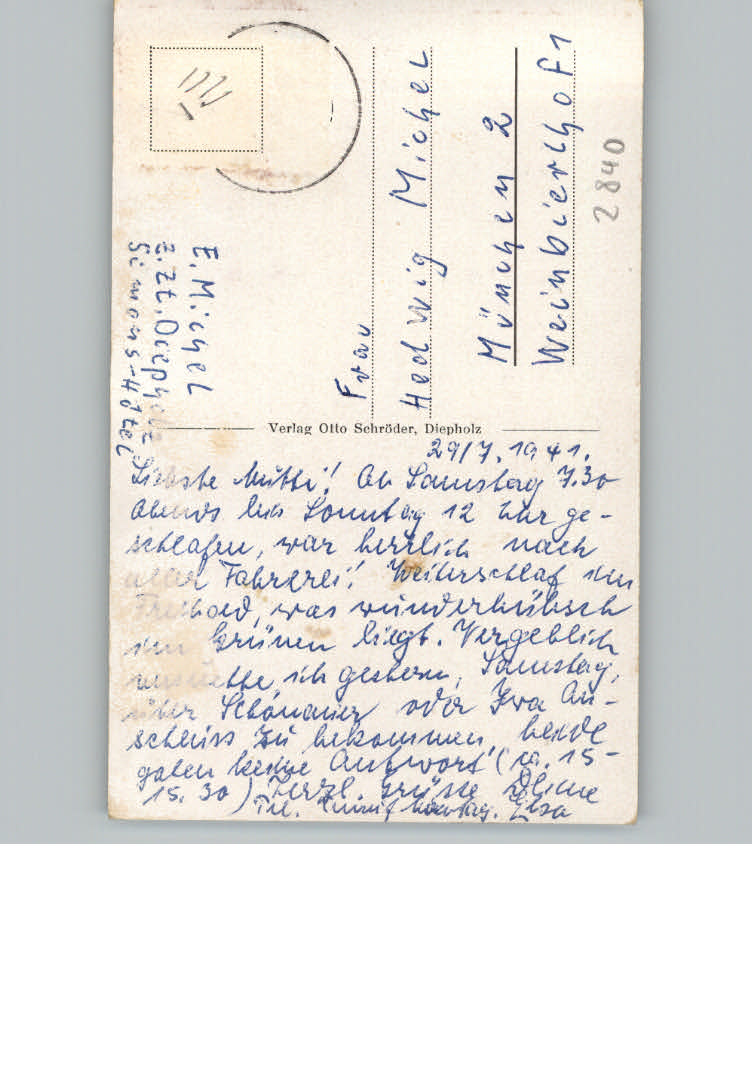 E. Michel
z. Zt. Diepholz
Simons-Hotel
Frau
Hedwig Michel
München 2
Weinbierlhof 1
2840
Verlag Otto Schröder, Diepholz
29/7. 1941.
Liebste Mutti! Ab Samstag 7.30
abends bis Sonntag 12 Uhr ge-
schlafen, war herrlich nach
aller Fahrerei! Weiterschlaf im
Freibad, was wunderhübsch
im Grünen liegt. Vergeblich
ich gestern, Samstag,
über Schönauer oder Iva An-
schluss zu bekommen, beide
gaben keine Antwort (ca. 15-
15.30) Herzl. Grüsse Deine
Tel. Anruf Montag. Elsa